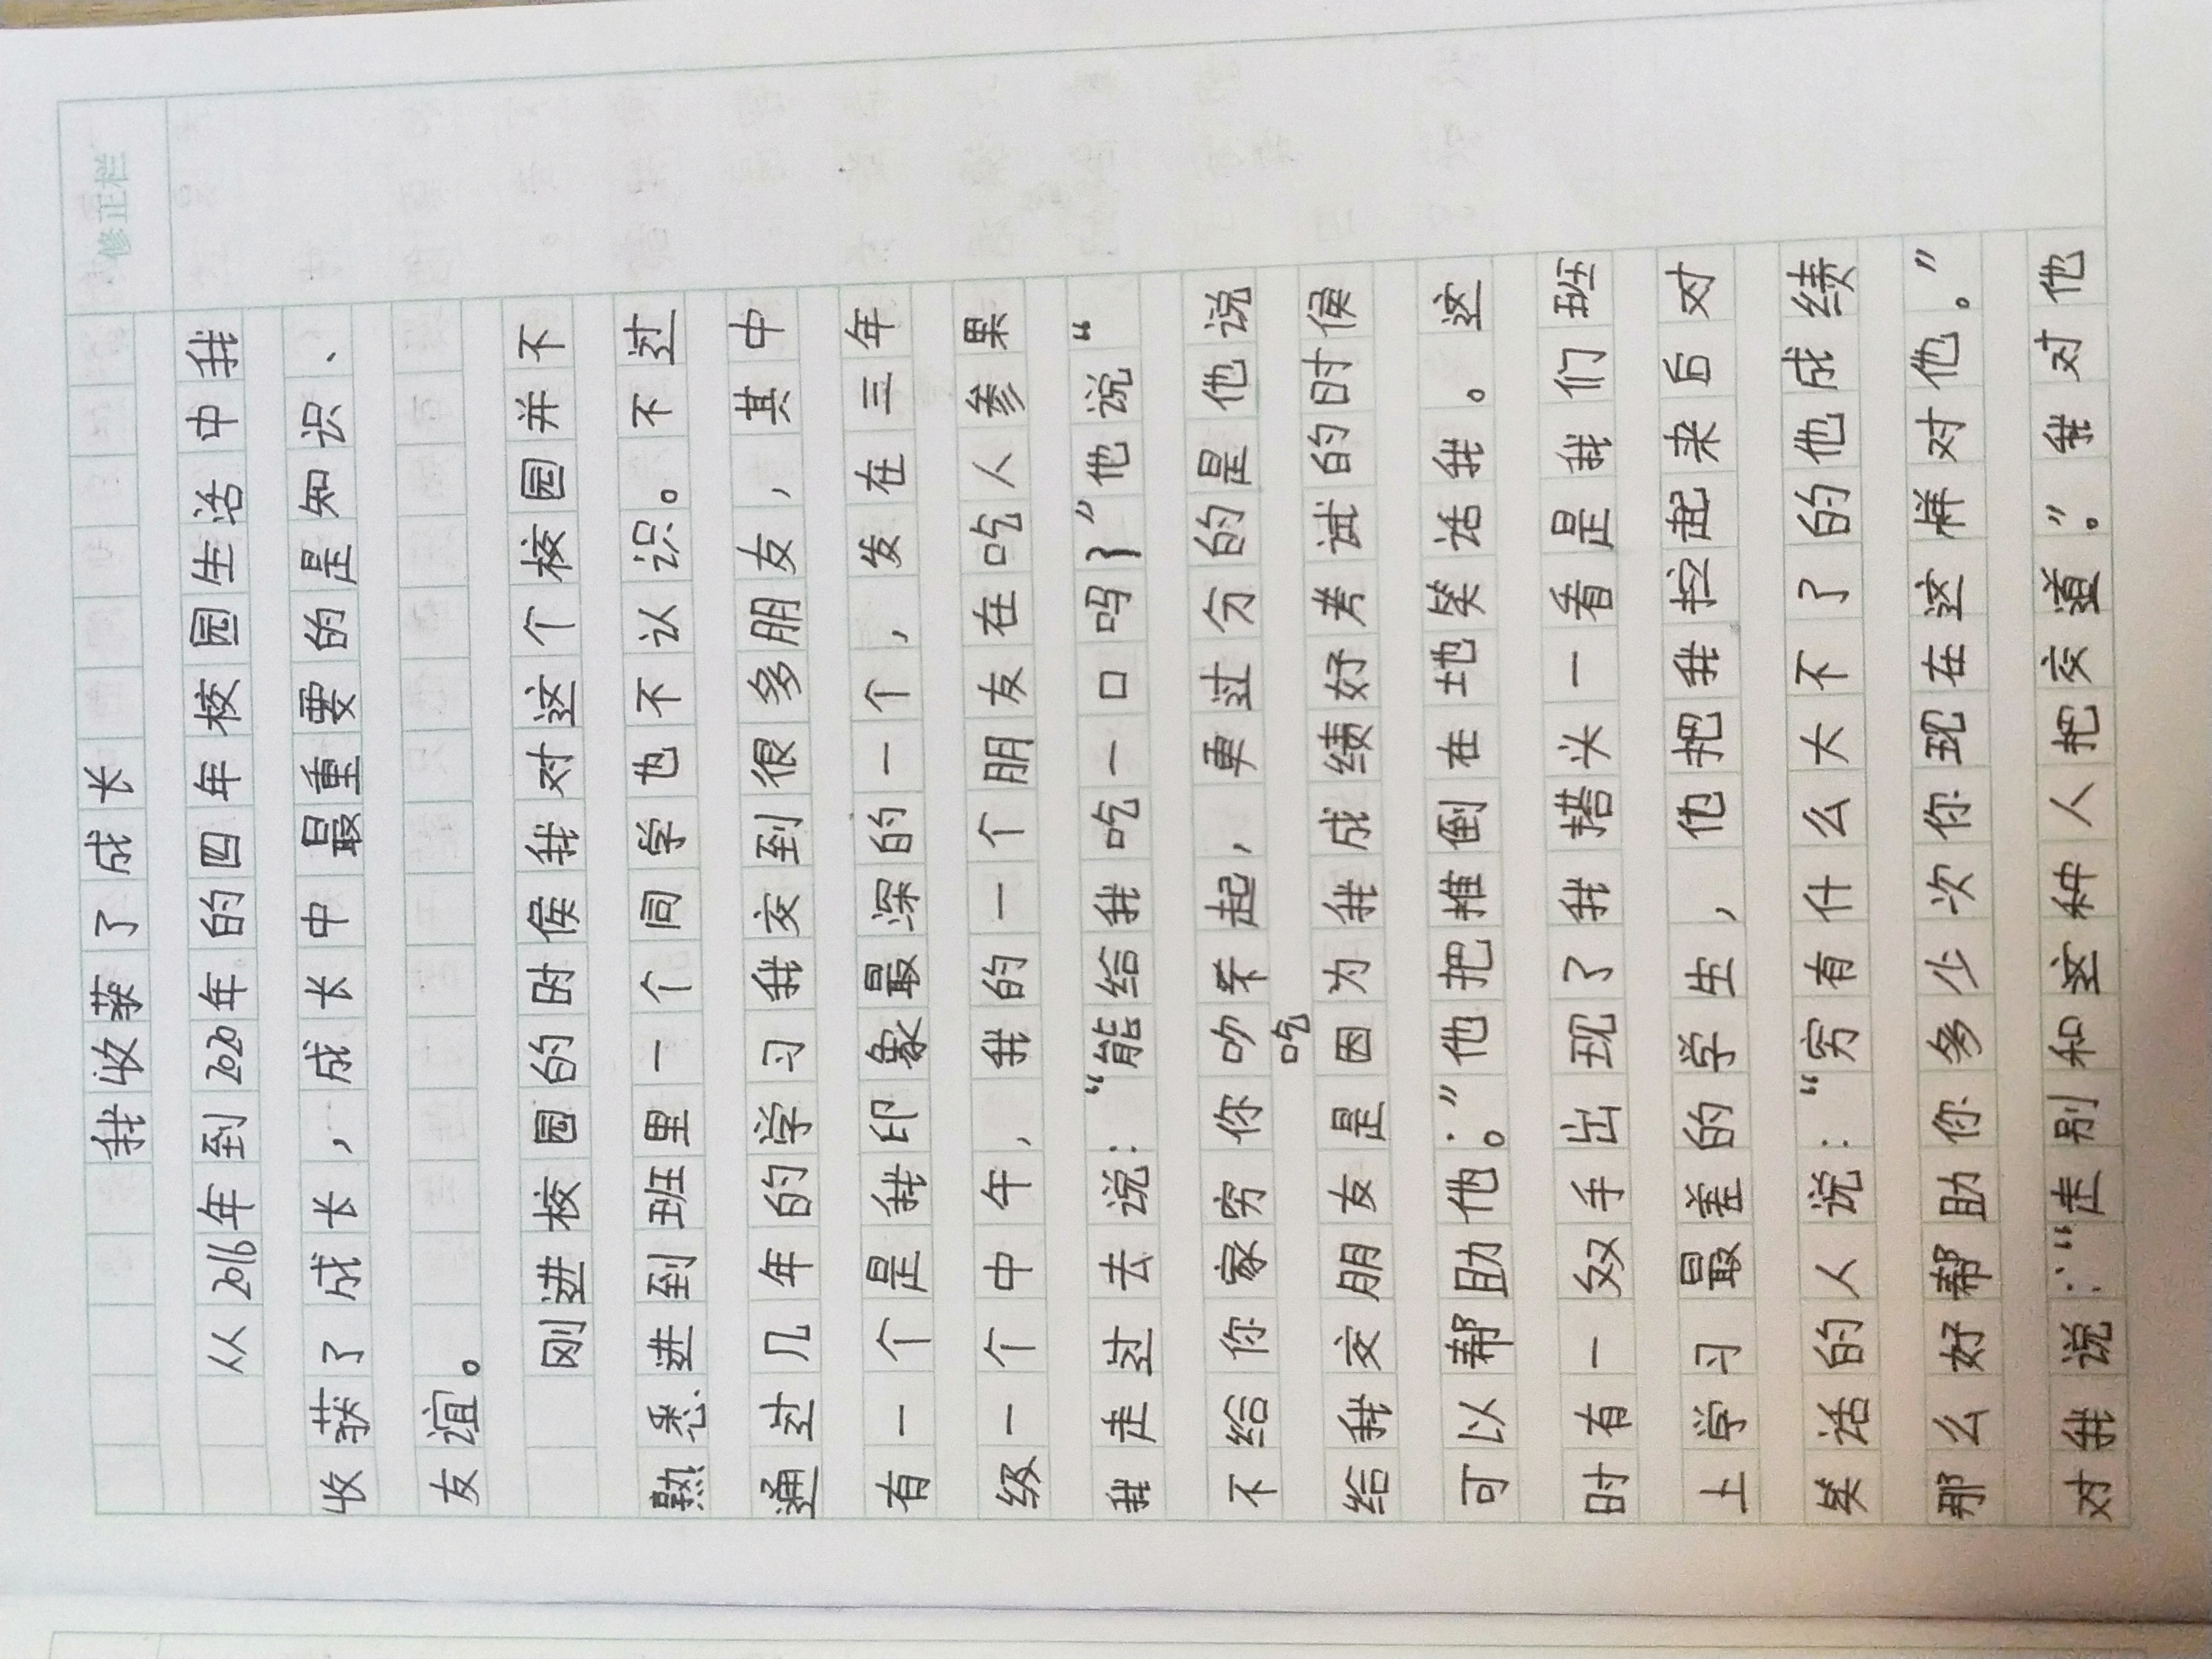 修正栏
我收获了成长
从2016年到2020年的四年校园生活中我
收获了成长，成长中最重要的是知识、
友谊。
刚进校园的时侯我对这个校园并不
熟悉进到班里一个同学也不认识。不过
通过几年的学习我交到很多朋友，其中
有一个是我印象最深的一个，发在三年
级一个中午，我的一个朋友在吃人参果
我走过去说：“能给我吃一口吗？”他说“
不给你家穷你吃不起，更过分的是他说
吃
给我交朋友是因为我成绩好考试的时侯
可以帮助他。”他把推倒在地笑话我。这
时有一双手出现了我搭头一看是我们班
上学习最差的学生，他把我拉起来后对
笑话的人说：“穷有什么大不了的他成绩
那么好帮助你多少次你现在这样对他。”
对我说：“走别和这种人把交道”。我对他